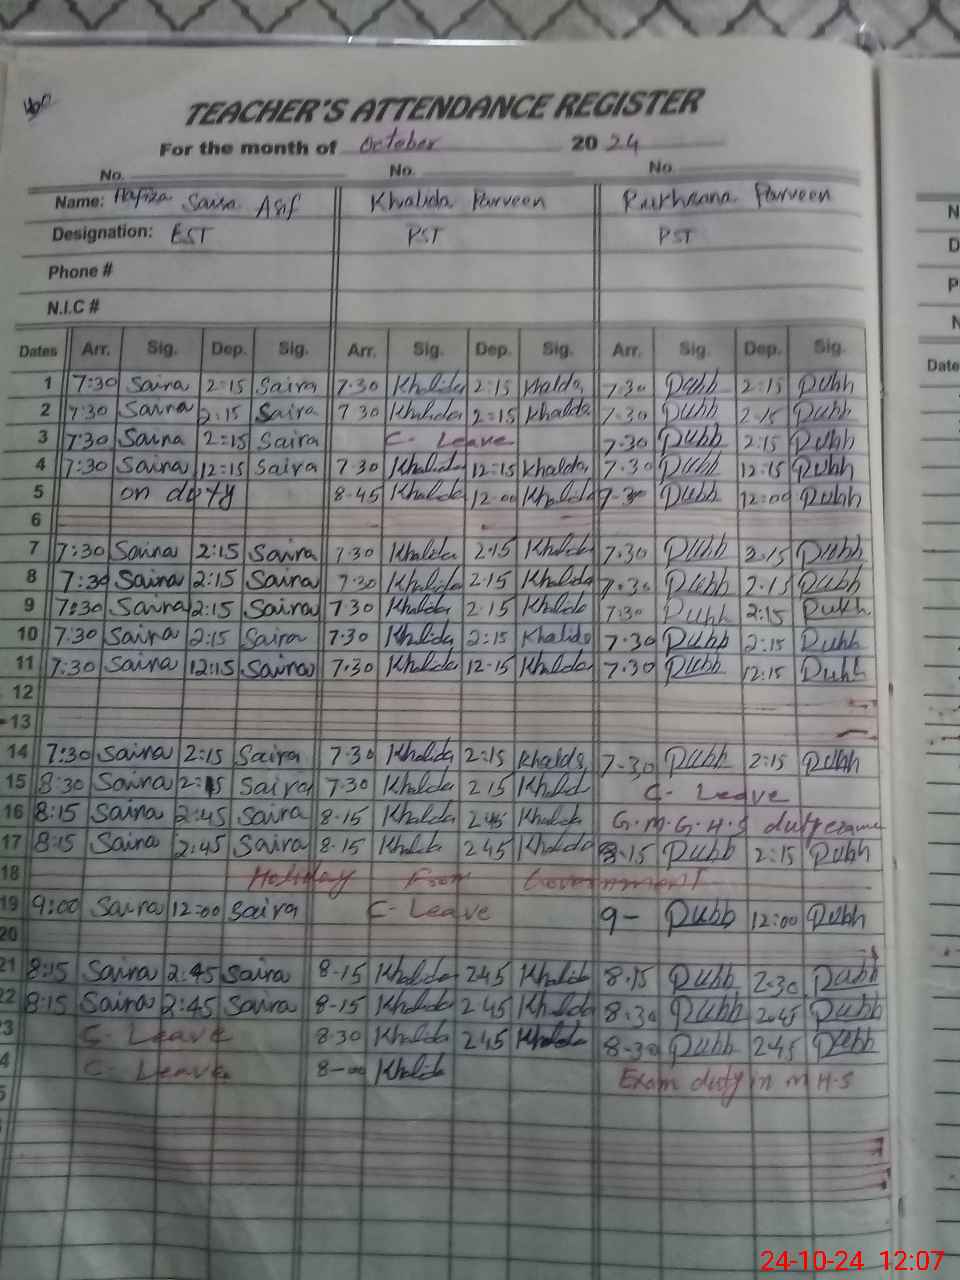 TEACHER'S ATTENDANCE REGISTER
For the month of October 2024
No. No. No.
Name: Hafiza Saira Asif Khalida Parveen Rukhsana Parveen
Designation: EST PST PST
Phone #
N.I.C #
Dates Arr. Sig. Dep. Sig. Arr. Sig. Dep. Sig. Arr. Sig. Dep. Sig.
1 7:30 Saira 2:15 Saira 7.30 Khalida 2:15 Khalida 7.30 Rukh 2:15 Rukh
2 7:30 Saira 2:15 Saira 7 30 Khalida 2:15 Khalida 7.30 Rukh 2.15 Rukh
3 7:30 Saira 2:15 Saira C- Leave 7.30 Rukh 2:15 Rukh
4 7:30 Saira 12:15 Saira 7.30 Khalida 12:15 Khalida 7.30 Rukh 12:15 Rukh
5 on duty 8.45 Khalida 12.00 Khalida Rukh 12:00 Rukh
6
7 7:30 Saira 2:15 Saira 7.30 Khalida 2.15 Khalida 7.30 Rukh 2.15 Rukh
8 7:30 Saira 2:15 Saira 7.30 Khalida 2.15 Khalida 7.30 Rukh 2.15 Rukh
9 7:30 Saira 2:15 Saira 7.30 Khalida 2.15 Khalida 7:30 Rukh 2:15 Rukh
10 7:30 Saira 2:15 Saira 7.30 Khalida 2:15 Khalida 7.30 Rukh 2:15 Rukh
11 7:30 Saira 12:15 Saira 7.30 Khalida 12.15 Khalida 7.30 Rukh 12.15 Rukh
12
13
14 7:30 Saira 2:15 Saira 7.30 Khalida 2:15 Khalida 7.30 Rukh 2:15 Rukh
15 8:30 Saira 2:15 Saira 7.30 Khalida 2 15 Khalid C- Leave
16 8:15 Saira 2:45 Saira 8.15 Khalida 2.45 Khalida G.M.G.H.S duty exam
17 8:15 Saira 2:45 Saira 8.15 Khalida 2 45 Khalida 8.15 Rukh 2:15 Rukh
18 Holiday From Government
19 9:00 Saira 12:00 Saira C- Leave 9- Rukh 12:00 Rukh
20
21 8:15 Saira 2:45 Saira 8-15 Khalida 245 Khalida 8.15 Rukh 2.30 Rukh
22 8:15 Saira 2:45 Saira 8-15 Khalida 245 Khalida 8.30 Rukh 2.45 Rukh
3 C- Leave 8 30 Khalida 245 Khalida 8-30 Rukh 2.45 Rukh
4 C- Leave 8-00 Khalida Exam duty in M H.S
5
24-10-24 12:07